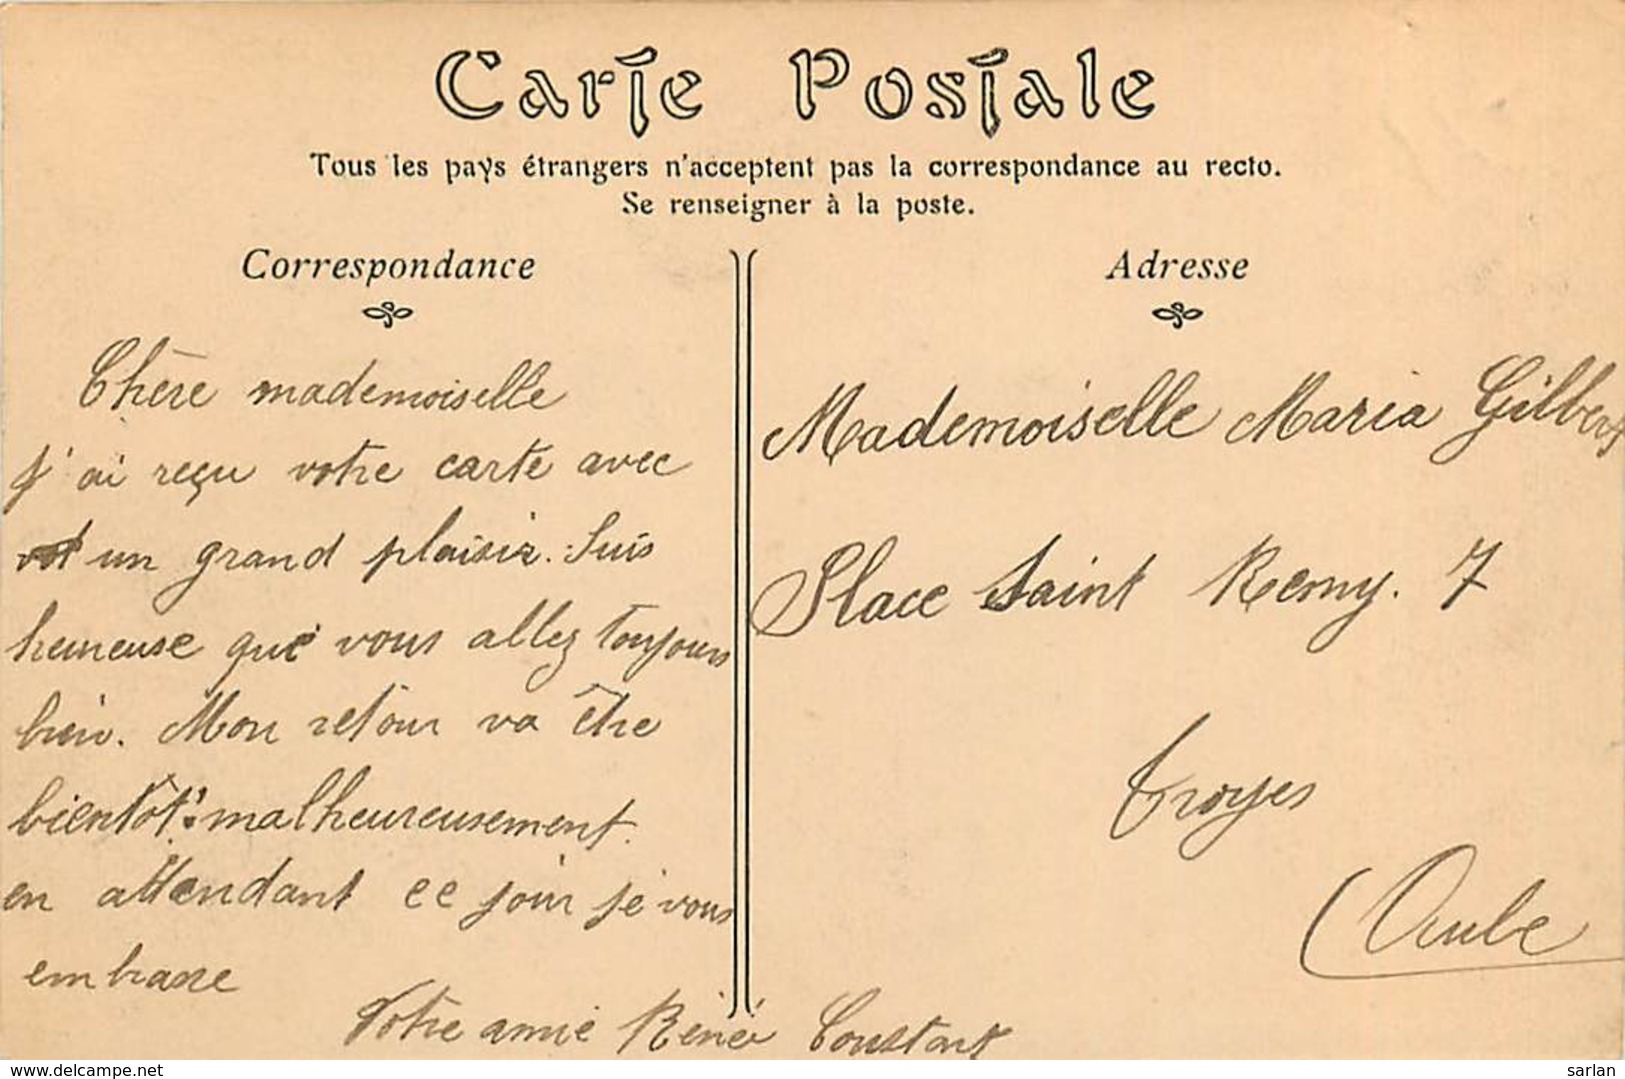 Carte Postale
Tous les pays étrangers n'acceptent pas la correspondance au recto.
Se renseigner à la poste.
Correspondance
Chère mademoiselle
j'ai reçu votre carte avec
un grand plaisir. Suis
heureuse que vous allez toujours
bien. Mon retour va être
bientôt. malheureusement.
en attendant ce jour je vous
embrasse
Votre amie Rénée Constant
Adresse
Mademoiselle Maria Gilbert
Place Saint Remy. 7
Troyes
(Aube
www.delcampe.net
sarlan